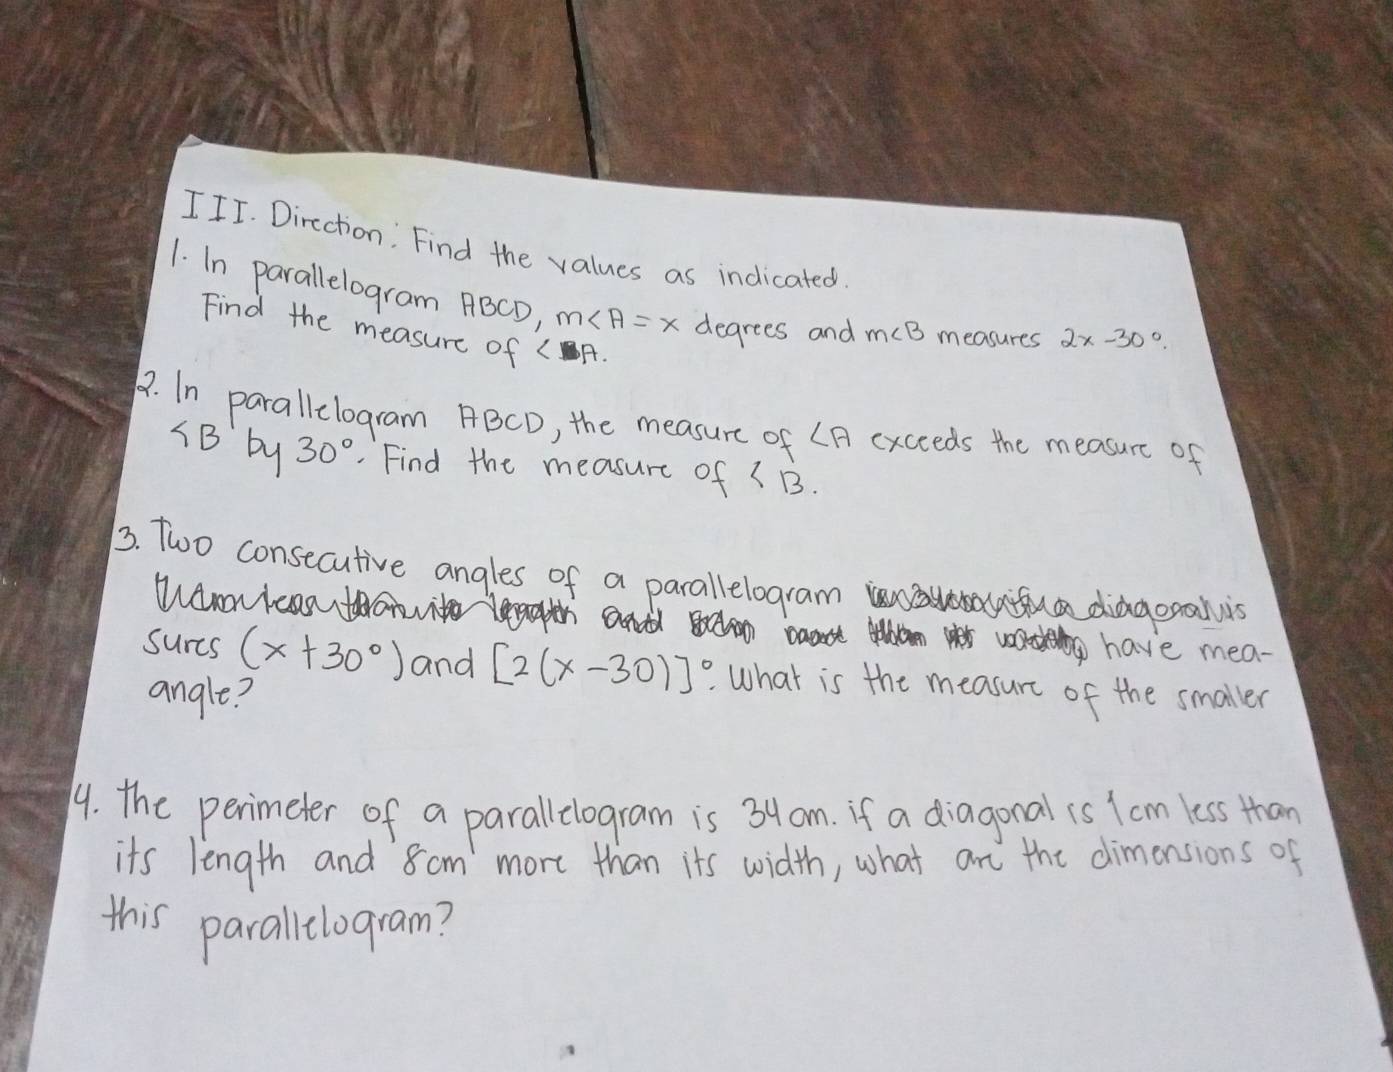 III. Direction: Find the values as indicated.
1. In parallelogram ABCD, m<A = x degrees and m<B measures 2x -30°.
Find the measure of < A.
2. In parallelogram ABCD, the measure of <A exceeds the measure of
<B by 30°. Find the measure of < B.
3. Two consecutive angles of a parallelogram a diagonal is
length and have mea-
sures (x +30°) and [2(x -30)]°. What is the measure of the smaller
angle?
4. The perimeter of a parallelogram is 34 cm. if a diagonal is 1cm less than
its length and 8cm more than its width, what are the dimensions of
this parallelogram?